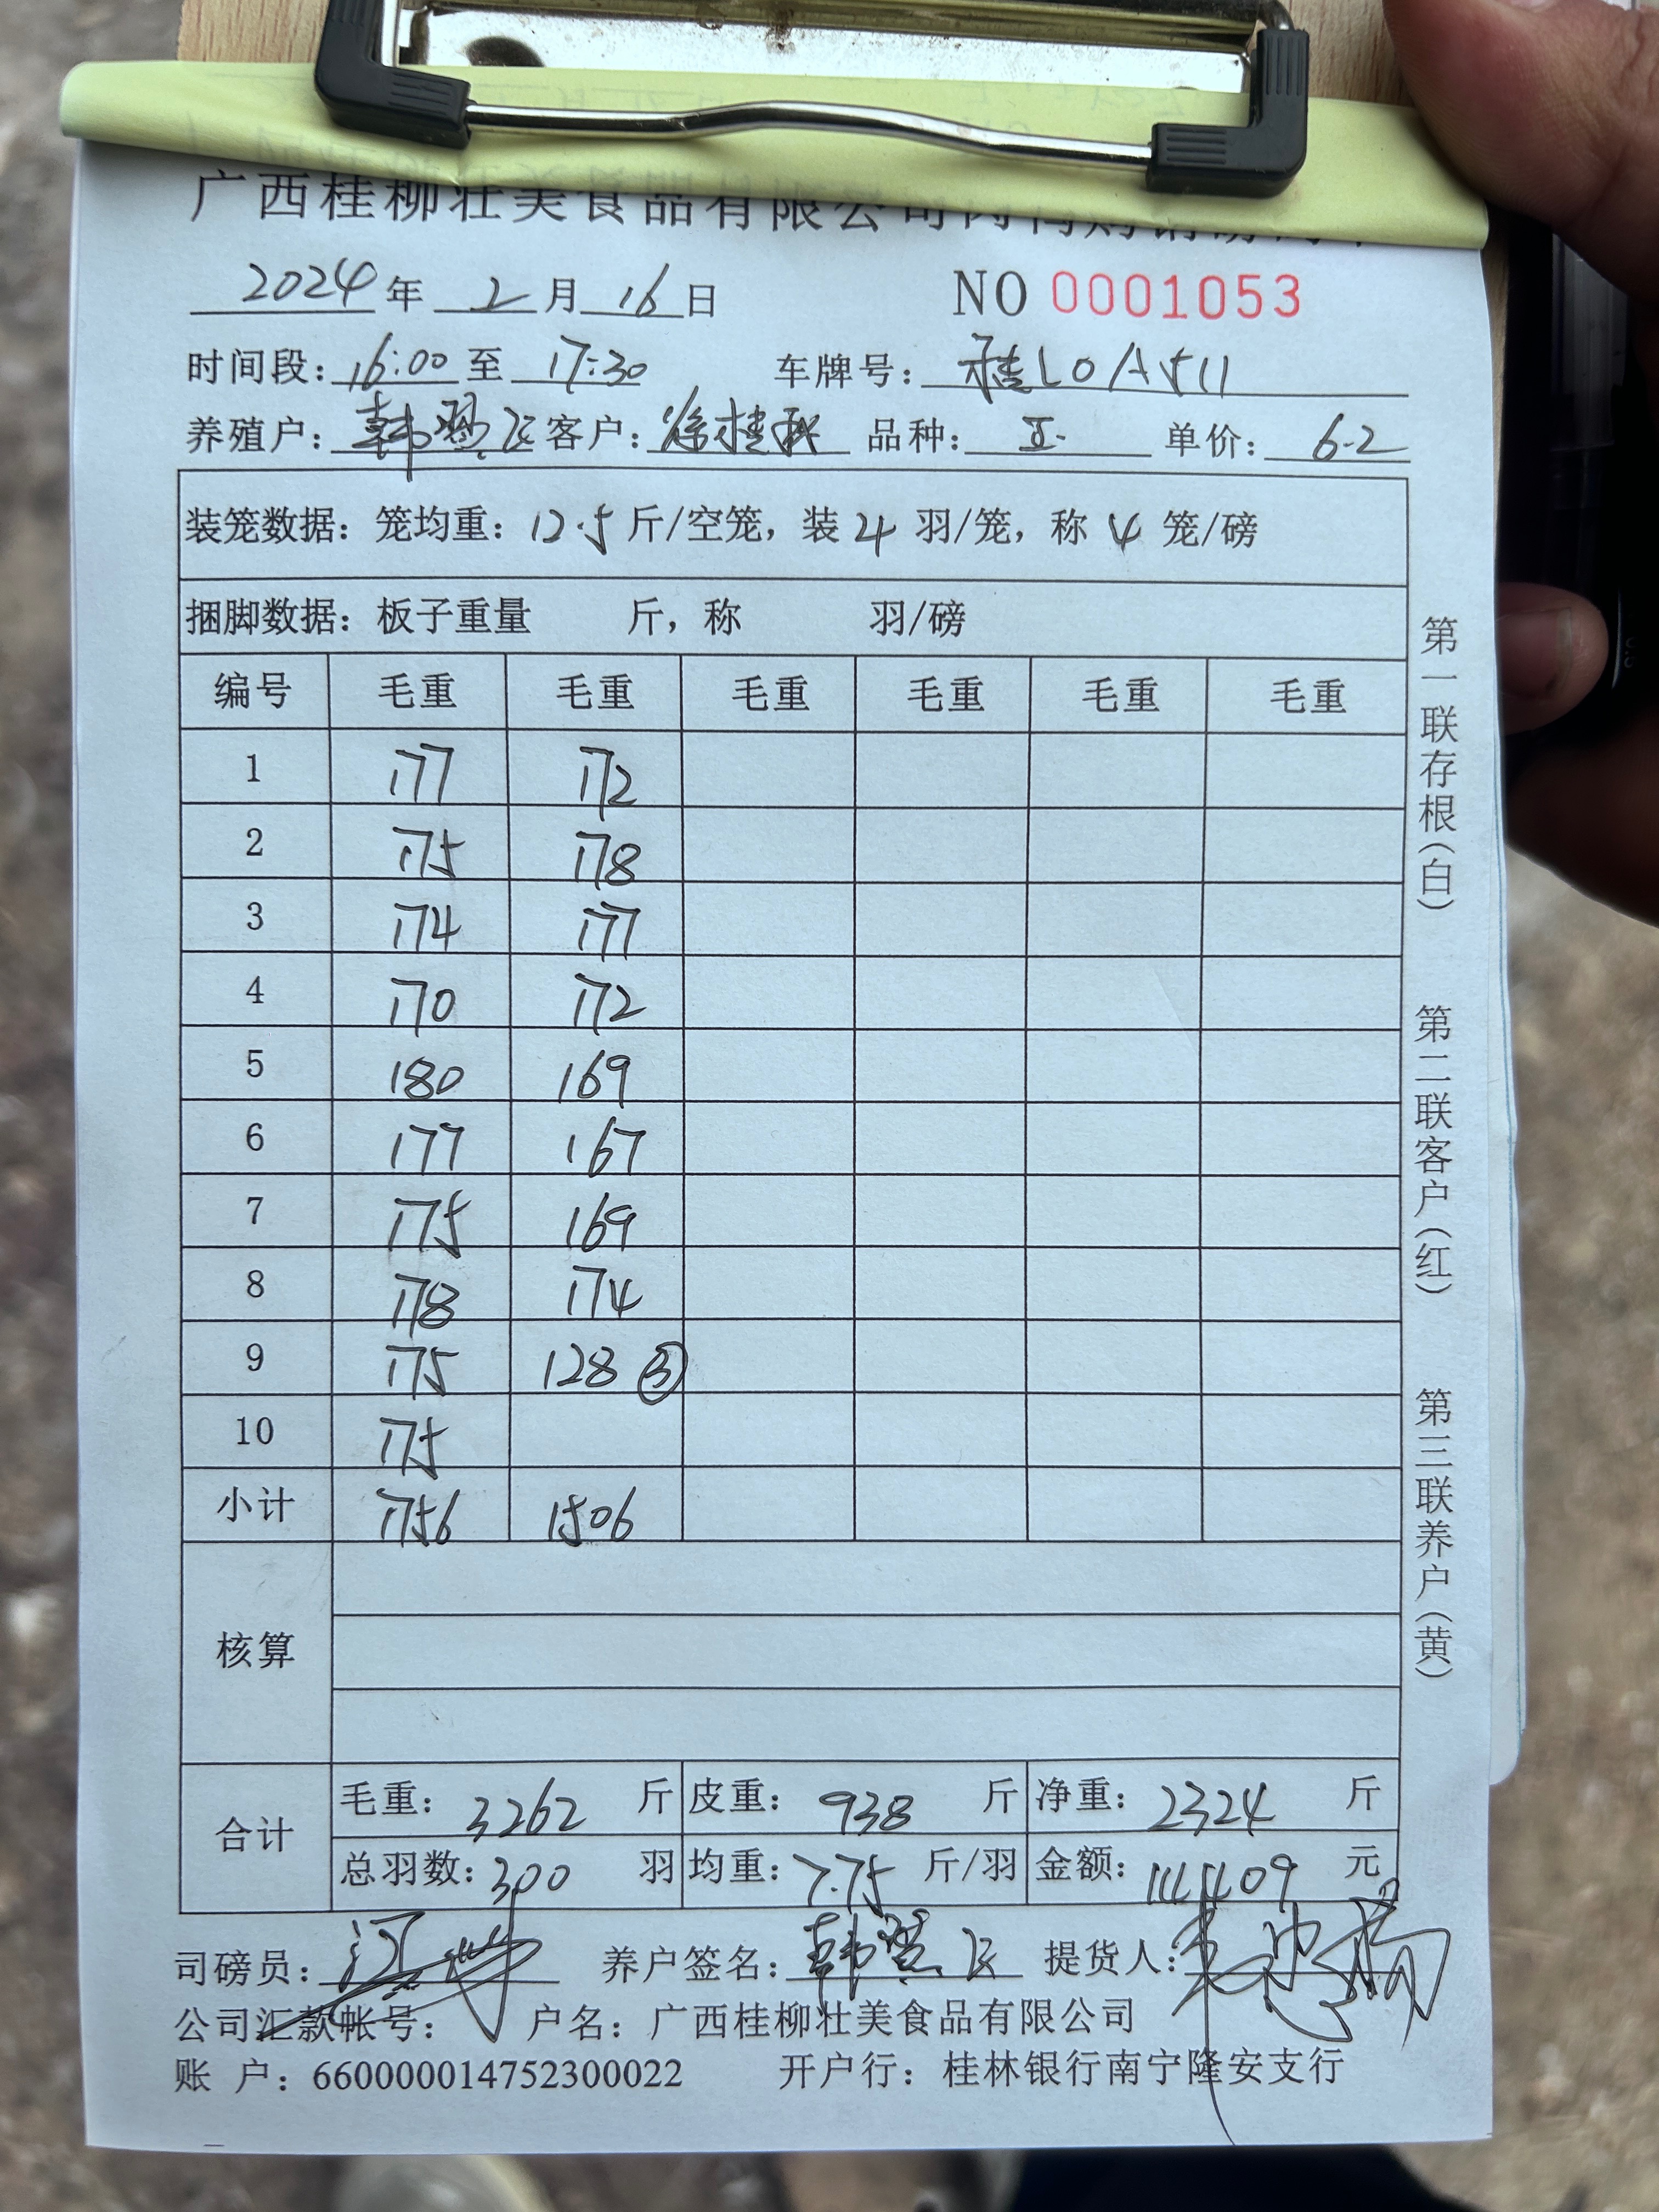 广西桂柳壮美食品有限公司肉
2024年 2月16日 NO 0001053
时间段：16:00至 17:30 车牌号：桂L0A511
养殖户：韩 飞 客户：徐桂秋 品种：正 单价：6.2
装笼数据：笼均重：12.5斤/空笼，装4羽/笼，称4笼/磅
捆脚数据：板子重量 斤，称 羽/磅
编号 毛重 毛重 毛重 毛重 毛重 毛重
1 177 172
2 175 178
3 174 177
4 170 172
5 180 169
6 177 167
7 175 169
8 178 174
9 175 128 ③
10 175
小计 1756 1506
核算
合计
毛重：3262 斤 皮重：938 斤 净重：2324 斤
总羽数：300 羽 均重：7.75 斤/羽 金额：14409 元
司磅员： 养户签名：韩 飞 提货人：
公司汇款帐号： 户名：广西桂柳壮美食品有限公司
账 户：660000014752300022 开户行：桂林银行南宁隆安支行
第一联存根(白) 第二联客户(红) 第三联养户(黄)